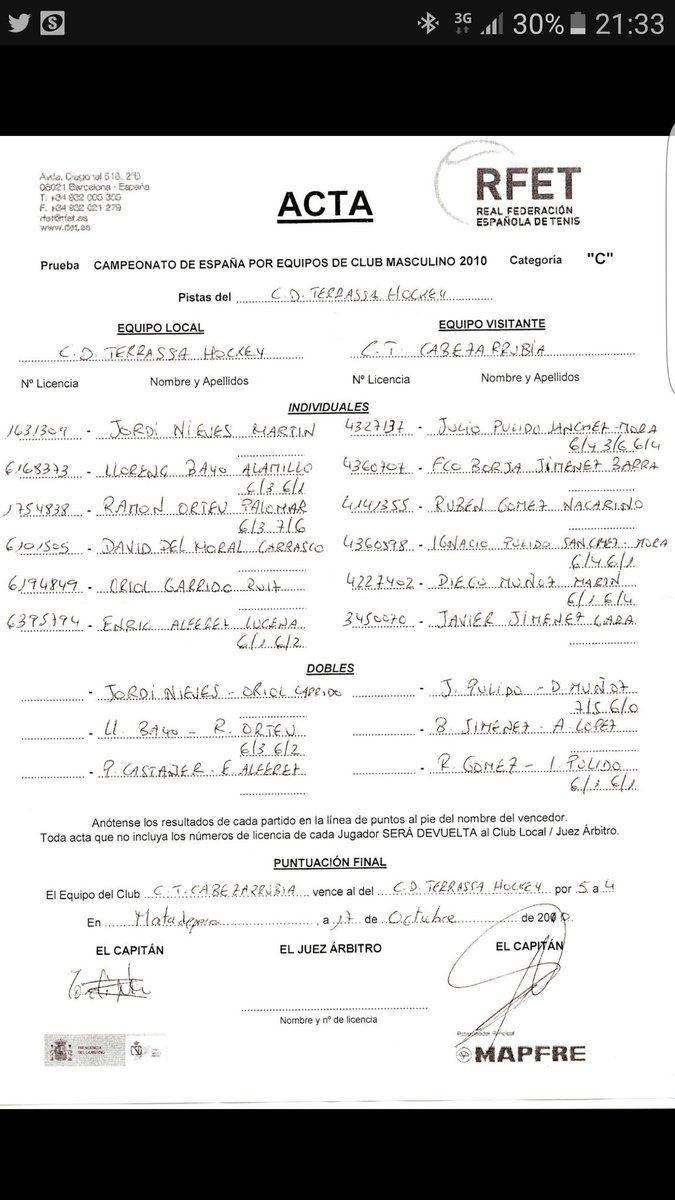 3G 30% 21:33
Avda. Diagonal 618, 2ºB
08021 Barcelona - España
T. +34 932 005 355
F. +34 932 021 279
rfet@rfet.es
www.rfet.es
ACTA
RFET
REAL FEDERACIÓN
ESPAÑOLA DE TENIS
Prueba CAMPEONATO DE ESPAÑA POR EQUIPOS DE CLUB MASCULINO 2010 Categoría "C"
Pistas del C.D. TERRASSA HOCKEY
EQUIPO LOCAL EQUIPO VISITANTE
C.D. TERRASSA HOCKEY C.T. CABEZARRUBIA
Nº Licencia Nombre y Apellidos Nº Licencia Nombre y Apellidos
INDIVIDUALES
1631309 - JORDI NIEVES MARTIN 4327137 - JULIO PULIDO SANCHEZ-MORA
6/4 3/6 6/4
6168373 - LLORENÇ BAYO ALAMILLO 4360707 - FCO BORJA JIMENEZ BARRA
6/3 6/1
1754838 - RAMON ORTEU PALOMAR 4141355 - RUBÉN GOMEZ NACARINO
6/3 7/6
6101505 - DAVID DEL MORAL CARRASCO 4360898 - IGNACIO PULIDO SANCHEZ-MORA
6/4 6/1
6194849 - ORIOL GARRIDO RUIZ 4227402 - DIEGO MUÑOZ MARIN
6/1 6/4
6395794 - ENRIC ALFEREZ LUCENA 3450070 - JAVIER JIMENEZ LARA
6/1 6/2
DOBLES
JORDI NIEVES - ORIOL GARRIDO - J. PULIDO - D. MUÑOZ
7/5 6/0
LL. BAYO - R. ORTEU - B. JIMÉNEZ - A. LOPEZ
6/3 6/2
P. CASTAÑER - E. ALFEREZ - R. GOMEZ - I. PULIDO
6/1 6/1
Anótense los resultados de cada partido en la línea de puntos al pie del nombre del vencedor.
Toda acta que no incluya los números de licencia de cada Jugador SERÁ DEVUELTA al Club Local / Juez Árbitro.
PUNTUACIÓN FINAL
El Equipo del Club C.T. CABEZARRUBIA vence al del C.D. TERRASSA HOCKEY por 5 a 4
En Matadepera, a 17 de Octubre de 2010.
EL CAPITÁN EL JUEZ ÁRBITRO EL CAPITÁN
Nombre y nº de licencia
PRESIDENCIA
DEL GOBIERNO
CSD
Patrocinador Principal
MAPFRE